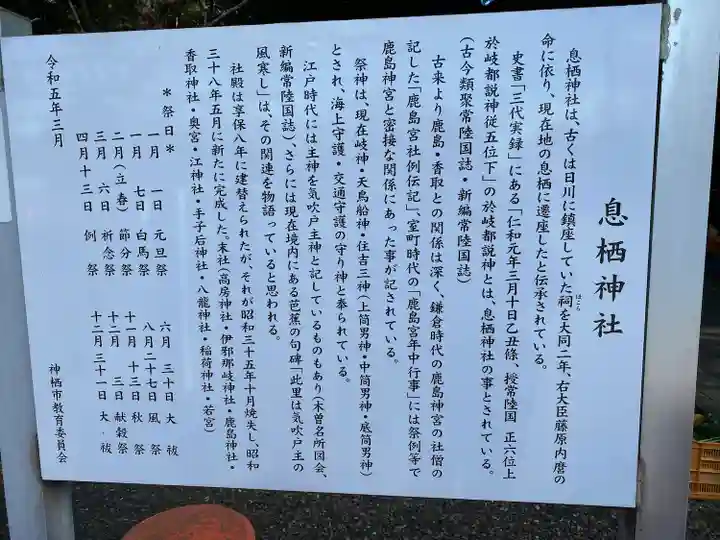 息栖神社
息栖神社は、古くは日川に鎮座していた祠を大同二年、右大臣藤原内麿の
ほこら
命に依り、現在地の息栖に遷座したと伝承されている。
史書「三代実録」にある「仁和元年三月十日乙丑條、授常陸国 正六位上
於岐都説神従五位下」の於岐都説神とは、息栖神社の事とされている。
(古今類聚常陸国誌・新編常陸国誌)
古来より鹿島・香取との関係は深く、鎌倉時代の鹿島神宮の社僧の
記した「鹿島宮社例伝記」、室町時代の「鹿島宮年中行事」には祭例等で
鹿島神宮と密接な関係にあった事が記されている。
祭神は、現在岐神・天鳥船神・住吉三神(上筒男神・中筒男神・底筒男神)
とされ、海上守護・交通守護の守り神と奉られている。
江戸時代には主神を気吹戸主神と記しているものもあり(木曽名所図会、
新編常陸国誌)、さらには現在境内にある芭蕉の句碑「此里は気吹戸主の
風寒し」は、その関連を物語っていると思われる。
社殿は享保八年に建替えられたが、それが昭和三十五年十月焼失し、昭和
三十八年五月に新たに完成した。末社(高房神社・伊邪那岐神社・鹿島神社・
香取神社・奥宮・江神社・手子后神社・八龍神社・稲荷神社・若宮)
*祭日*
一月 一日 元旦祭 六月 三十日 大祓
一月 七日 白馬祭 八月二十七日 風祭
二月(立春) 節分祭 十一月十三日 秋祭
三月 六日 祈念祭 十二月 三日 献穀祭
四月十三日 例祭 十二月三十一日 大祓
令和五年三月 神栖市教育委員会